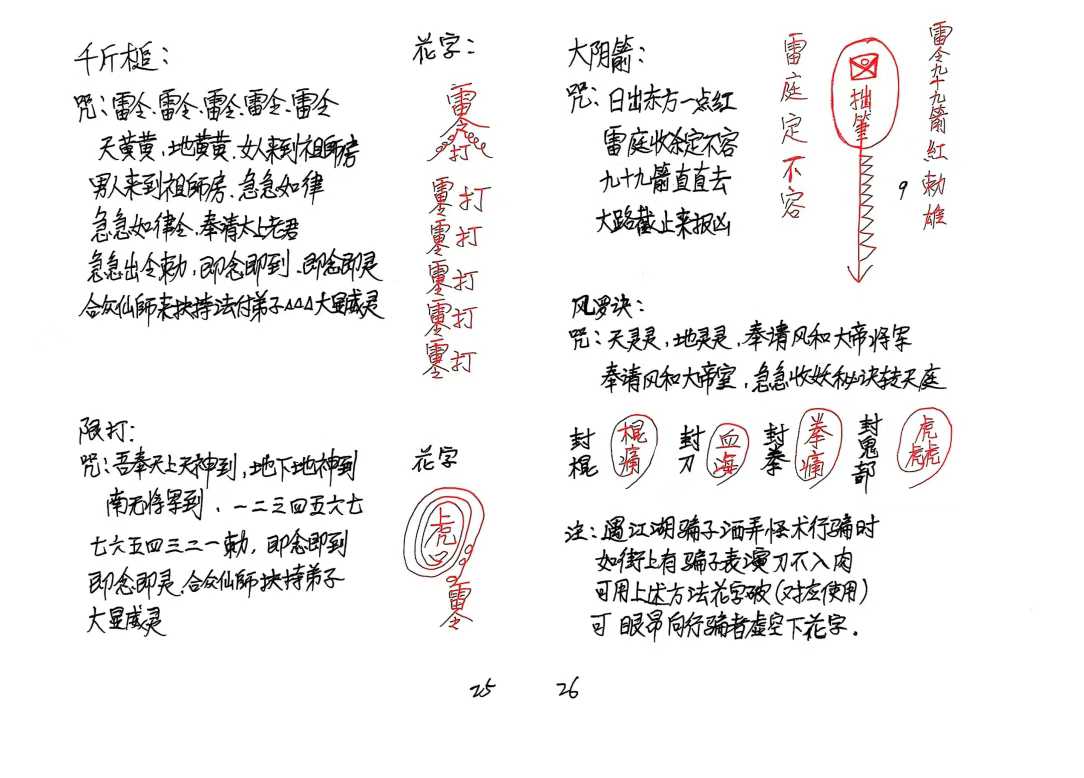 千斤槌：
咒：雷令、雷令、雷令、雷令、雷令
天黄黄，地黄黄、女人来到祖师房
男人来到祖師房、急急如律
急急如律令，奉请太上老君
急急出令勅，即念即到、即念即灵
合众仙師来扶持法付弟子△△△大显威灵
花字：
雷令
打
雷令打
雷令打
雷令打
雷令打
雷令打
限打：
咒：吾奉天上天神到，地下地神到
南无将军到．一二三四五六七
七六五四三二一勅，即念即到
即念即灵、合众仙師扶持弟子
大显威灵
花字
虎
雷令
25
大阴箭：
咒：日出东方一点红
雷庭收杀定不容
九十九箭直直去
大路截止来报凶
雷庭定不容
拙筆
9
雷令九十九箭紅勅雄
风罗诀：
咒：天灵灵，地灵灵，奉请风和大帝将军
奉请风和大帝室，急急收妖秘诀转天庭
封棍
棍痛
封刀
血海
封拳
拳痛
封鬼部
虎虎虎
注：遇江湖骗子洒弄怪术行骗时
如街上有骗子表演刀不入肉
可用上述方法花字破（对应使用）
可眼昂向行骗者虚空下花字．
26